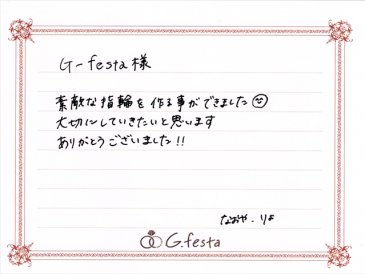 G-festa様
素敵な指輪を作る事ができました☺
大切にしていきたいと思います
ありがとうございました!!
なおや．りょ
G.festa